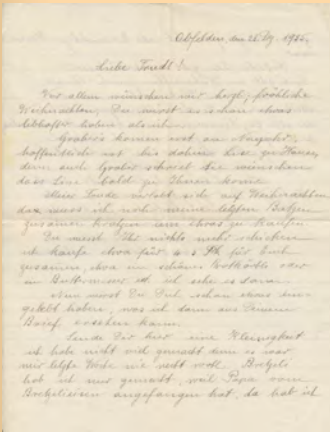 Obfelden, den 25. Dez. 1955.
Liebe Trudi!
Vor allem wünschen wir herzl. fröhliche
Weihnachten. Du wirst es schon etwas
haben als ich
kommen erst an Neujahr,
hoffentlich ist bis dahin zu Hause,
denn auch schreibt sie wünschen
dass bald zu Ihnen komme
sich auf Weihnachten
da muss ich noch meine letzten Batzen
zusammen um etwas zu kaufen
Du musst Ihr nichts mehr schicken
ich kaufe etwas für 4-5 Fr
zusammen, etwa ein schönes oder
ein Buttermesser ich sehe es dann
Nun wirst Du Dich schon etwas ein-
gelebt haben, was ich dann aus Deinem
Brief ersehen kann.
Sende Dir hier eine Kleinigkeit
ich habe nicht viel gemacht denn es war
mir letzte Woche nie recht wohl. Bretzeli
hab ich nur gemacht, weil Papa vom
Bretzelieisen angefangen hat, da hab ich